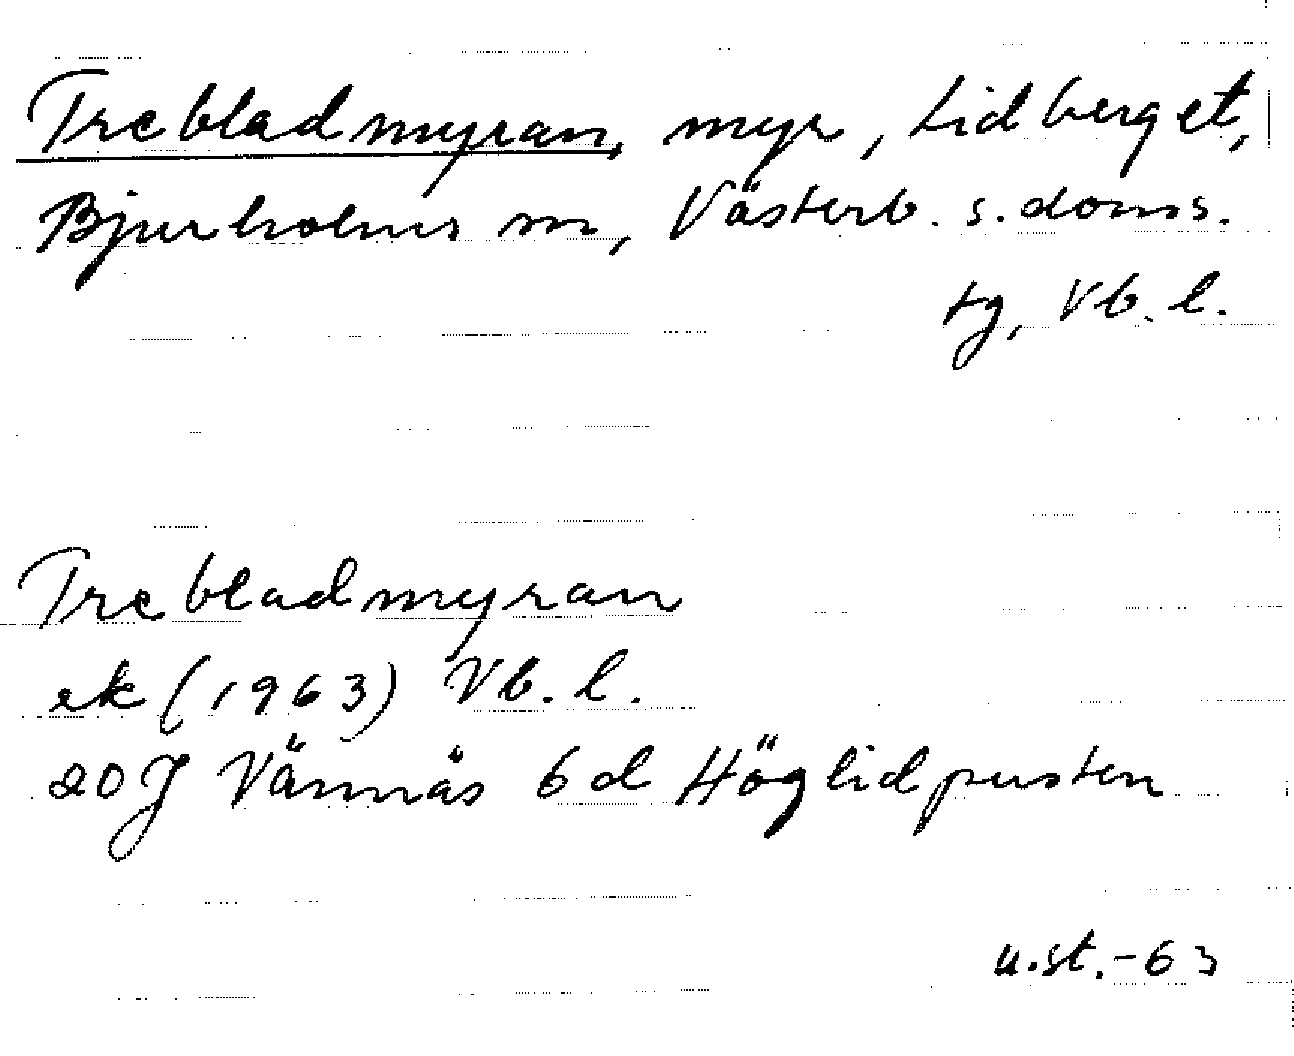 Trebladmyran, myr, Lidberget,
Bjurholms sn, Västerb. s. doms.
tg, Vb. l.
Trebladmyran
ek (1963) Vb. l.
20J Vännäs 6d Höglidpusten
u.st.-63